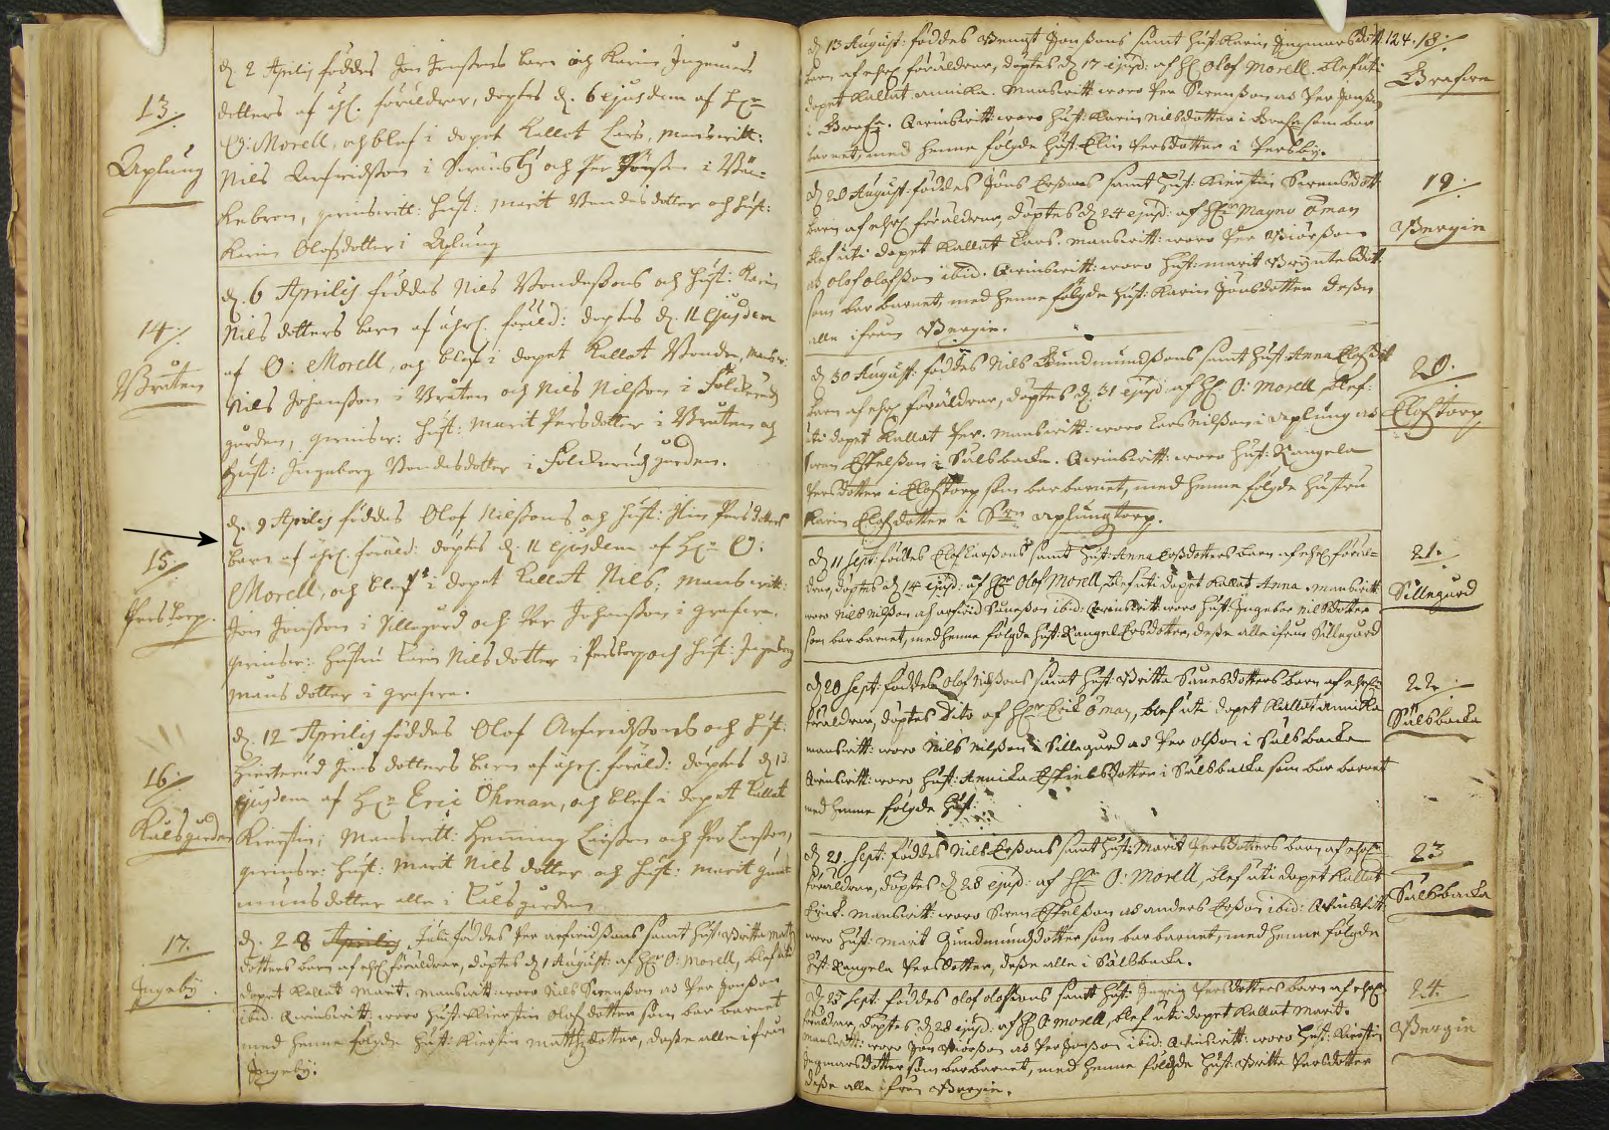 13.
Aplung
d. 2 Aprilis föddes Jon Jonssons barn och Karin Ingemars
dotters af ächt. föräldrar, döptes d. 6 ejusdem af H:r
O: Morell, och blef i dopet kallat Lars, manswitt:
Nils Arfwidsson i och Per Jönsson i
qwinswitt: hust: Marit dotter och hust:
Karin Olofsdotter i Aplung
14.
Bråten
d. 6 Aprilis föddes Nils Bondessons och hust: Karin
Nilsdotters barn af ächt. föräld: döptes d. 11 ejusdem
af O: Morell, och blef i dopet kallat Bonde,
Nils Johansson i Bråten och Nils Nilsson i
gården, qwinsw: hust: Marit Persdotter i Bråten och
hust: Ingeborg Bondesdotter i gården.
15.
Perstorp.
d. 9 Aprilis föddes Olof Nilssons och hust: Persdotters
barn af ächt. föräld: döptes d. 11 ejusdem af H:r O:
Morell, och blef i dopet kallat Nils: manswitt:
Jon Jonsson i Sillegård och Per Johansson i Grafwa.
qwinsw: hustru Karin Nilsdotter i Perstorp och hust: Ingeborg
Månsdotter i Grafwa.
16.
Kålsgården
d. 12 Aprilis föddes Olof Arfwidssons och hust:
dotters barn af ächt. föräld: döptes d. 13
ejusdem af H:r Eric Öhman, och blef i dopet kallat
Kierstin; Manswitt: Henning Larsson och Per Larsson,
qwinsw: hust: Marit Nilsdotter och hust: Marit
dotter alle i Kålsgården
17.
Ingeby.
d. 28 Aprilis Julii föddes Per Arfwidssons samt hust: Britta
dotters barn af ächt. föräldrar, döptes d. 1 August: af H:r O: Morell, blef uti
dopet kallat Marit, manswitt: woro Nils Swensson och Per Jonsson
ibid: qwinswitt: woro hust: Kierstin Olofsdotter som bar barnet
med henne följde hust: Kierstin dotter, desse alle ifrån
Ingeby.
124.
18.
Grafwa
d. 13 August: föddes Bengt Jonssons samt hust: Karin Ingmarsdott:
barn af ächt. föräldrar, döptes d. 17 ejusd: af H: Olof Morell. blef uti
dopet kallat Annika. Manswitt: woro Per Swensson och Per Jonsson
i Grafwa. Qwinswitt: woro hust: Karin Nilsdotter i Grafwa som bar
barnet, med henne följde hust: Elin Persdotter i Persby.
19.
Bergin
d. 20 August: föddes Jöns samt hust: Kierstin Swensdott:
barn af ächt. föräldrar, döptes d. 24 ejusd: af H:r Magno Öman
blef uti dopet kallat Lars. Manswitt: woro Per Biörsson
och Olof Olofsson ibid. Qwinswitt: woro hust: Marit Bryntesdott:
som bar barnet med henne följde hust: Karin Jonsdotter desse
alle ifrån Bergin.
20.
Elofstorp
d. 30 August: föddes Nils Gudmundssons samt hust: Anna Elofsdott:
barn af ächt. föräldrar, döptes d. 31 ejusd: af H: O: Morell, blef
uti dopet kallat Per. Manswitt: woro Lars Nilsson i Aplung och
Swen Eskelsson i Sälsbacka. Qwinswitt: woro hust: Rangela
Persdotter i Elofstorp som bar barnet, med henne följde hustru
Karin Elofsdotter i Aplungstorp.
21.
Sillegård
d. 11 Sept: föddes Elof Larssons samt hust: Anna dotters barn af ächt. föräl-
drar, döptes d. 14 ejusd: af H:r Olof Morell, blef uti dopet kallat Anna. Manswitt:
woro Nils Nilsson och Arfwid Swensson ibid: Qwinswitt: woro hust: Ingeber Nilsdotter
som bar barnet, med henne följde hust: Rangel dotter, desse alle ifrån Sillegård
22.
Sälsbacka
d. 20 Sept: föddes Olof Nilssons samt hust: Britta Swensdotters barn af ächt.
föräldrar, döptes dito af H:r Erik Öman, blef uti dopet kallat Annika
manswitt: woro Nils Nilsson i Sillegård och Per Olsson i Sälsbacka
Qwinswitt: woro, hust: Annika Eskielsdotter i Sälsbacka som bar barnet
med henne följde hust:
23
Sälsbacka
d. 21 Sept: föddes Nils samt hust: Marit Persdotters barn af ächt.
föräldrar, döptes d. 28 ejusd: af H:r O: Morell, blef uti dopet kallat
Erick. Manswitt: woro Swen Eskelsson och Anders ibid: Qwinswitt:
woro hust: Marit Gudmundsdotter som bar barnet, med henne följde
hust: Rangela Persdotter, desse alle i Sälsbacka.
24.
Bergin
d. 25 Sept: föddes Olof Olofssons samt hust: Ingrin Persdotters barn af ächt.
föräldrar, döptes d. 28 ejusd: af H: O Morell, blef uti dopet kallat Marit.
Manswitt: woro Jon Biörsson och Per Jonsson ibid: Qwinswitt: woro hust: Kierstin
Ingmarsdotter som bar barnet, med henne följde hust: Britta Persdotter
desse alle ifrån Bergin.